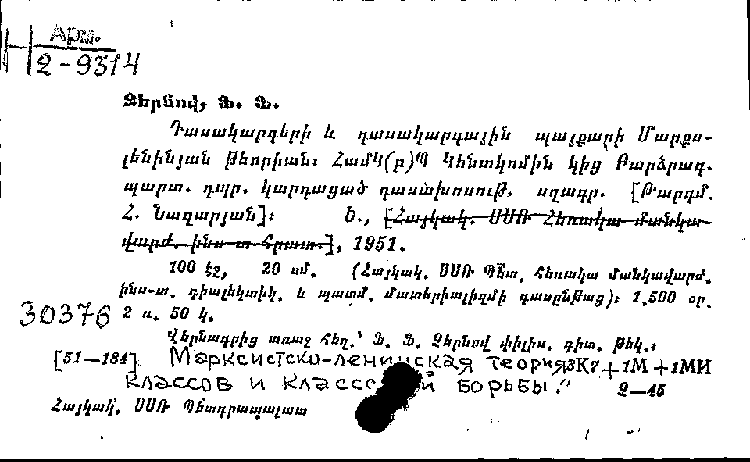 Арм.
2-9314
Չերնով, Ֆ. Ֆ.
Դասակարգերի և դասակարգային պայքարի Մարքս-
լենինյան թեորիան։ Համկ(բ)Պ Կենտկոմին կից Բարձրագ.
պարտ. դպր. կարդացած դասախոսութ. սղագր. [Թարգմ.
Հ. Նազարյան]։ Ե., [Հայկակ. ՍՍՌ Հեռակա մանկա-
վարժ. ինս-տ Հրատ.], 1951.
100 էջ, 20 սմ. (Հայկակ. ՍՍՌ Պետ. Հեռակա մանկավարժ.
ինս-տ. դիալեկտիկ. և պատմ. մատերիալիզմի դասընթաց)։ 1.500 օր.
30376 2 ռ. 50 կ.
Վերնագրից առաջ հեղ.՝ Ֆ. Ֆ. Չերնով փիլիս. գիտ. թեկ.։
[51—184] Марксистско-ленинская теория 3К7+1М+1МИ
классов и классовой борьбы." 2—45
Հայկակ. ՍՍՌ Պետգրապալատ